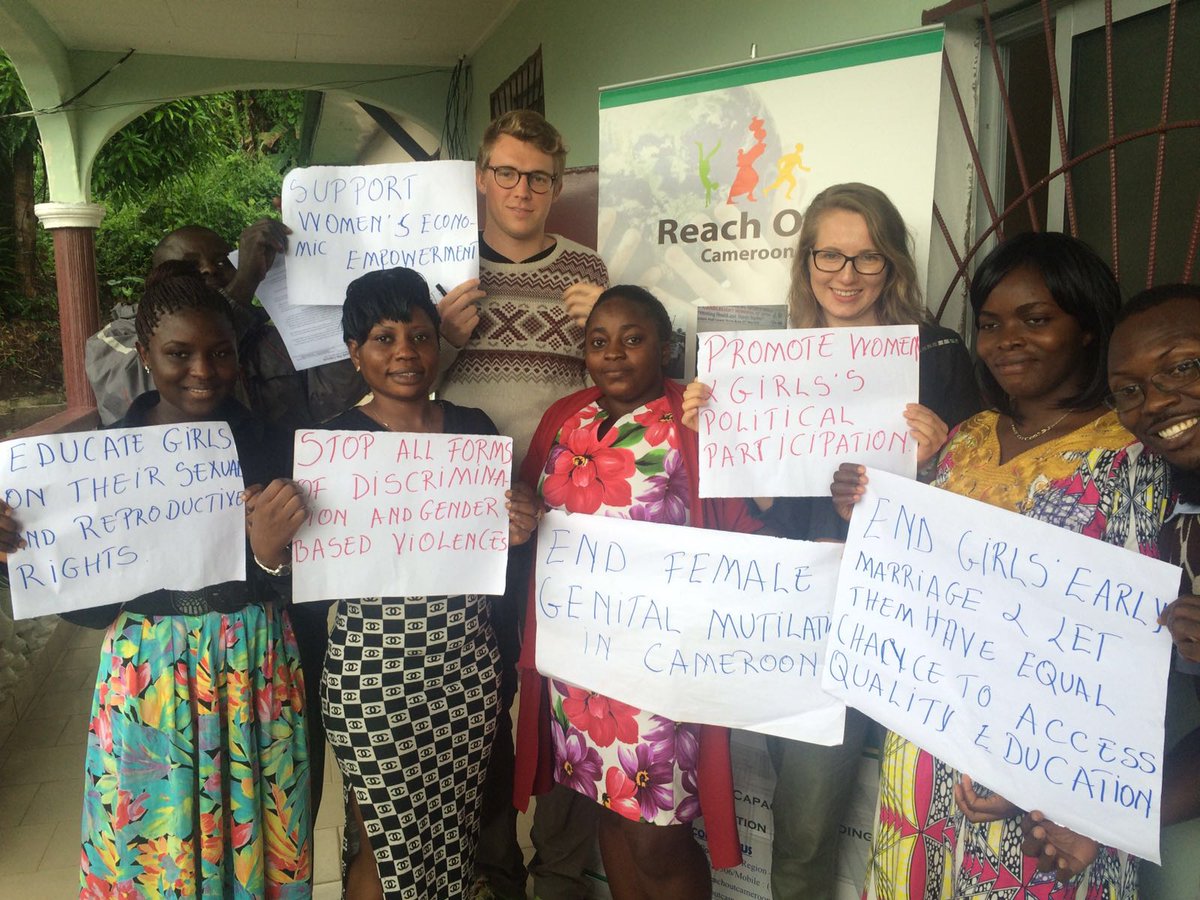 SUPPORT
WOMEN'S ECONO-
MIC EMPOWERMENT
Reach O
Cameroon
EDUCATE GIRLS
ON THEIR SEXUAL
AND REPRODUCTIVE
RIGHTS.
STOP ALL FORMS
OF DISCRIMINA-
TION AND GENDER
BASED VIOLENCES
PROMOTE WOMEN
& GIRLS'S
POLITICAL
PARTICIPATION.
END FEMALE
GENITAL MUTILATI
IN CAMEROON
END GIRLS' EARLY
MARRIAGE & LET
THEM HAVE EQUAL
CHANCE TO ACCESS
QUALITY EDUCATION
CAPAC
DING
US
Region